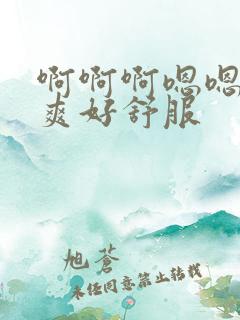 啊啊啊嗯嗯
爽好舒服
旭苍
未经同意禁止转载